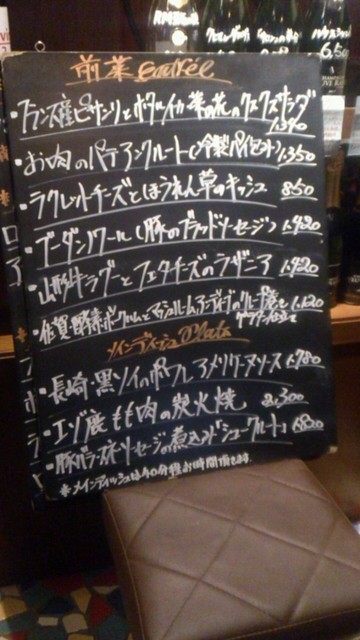 前菜 Entrée
・フランス産ピサンリとホタルイカ 菜の花のクスクスサラダ 1,340
・お肉のパテアンクルート(冷製パイ包み) 1,350
・ラクレットチーズとほうれん草のキッシュ 850
・ブーダンノワール(豚のブラッドソーセージ) 1,420
・山形牛ラグーとフェタチーズのラザニア 1,420
・佐賀酵素ポークハムとマッシュルーム、アンディーブのクレープ包み 1,120
グラタン仕立て
メインディッシュ Plats
・長崎・黒ソイのポワレ アメリケーヌソース 1,780
・エゾ鹿もも肉の炭火焼 2,300
・豚バラ、スネ、ソーセージの煮込み「シュークルート」 1,820
※メインディッシュは40分程お時間頂きます。